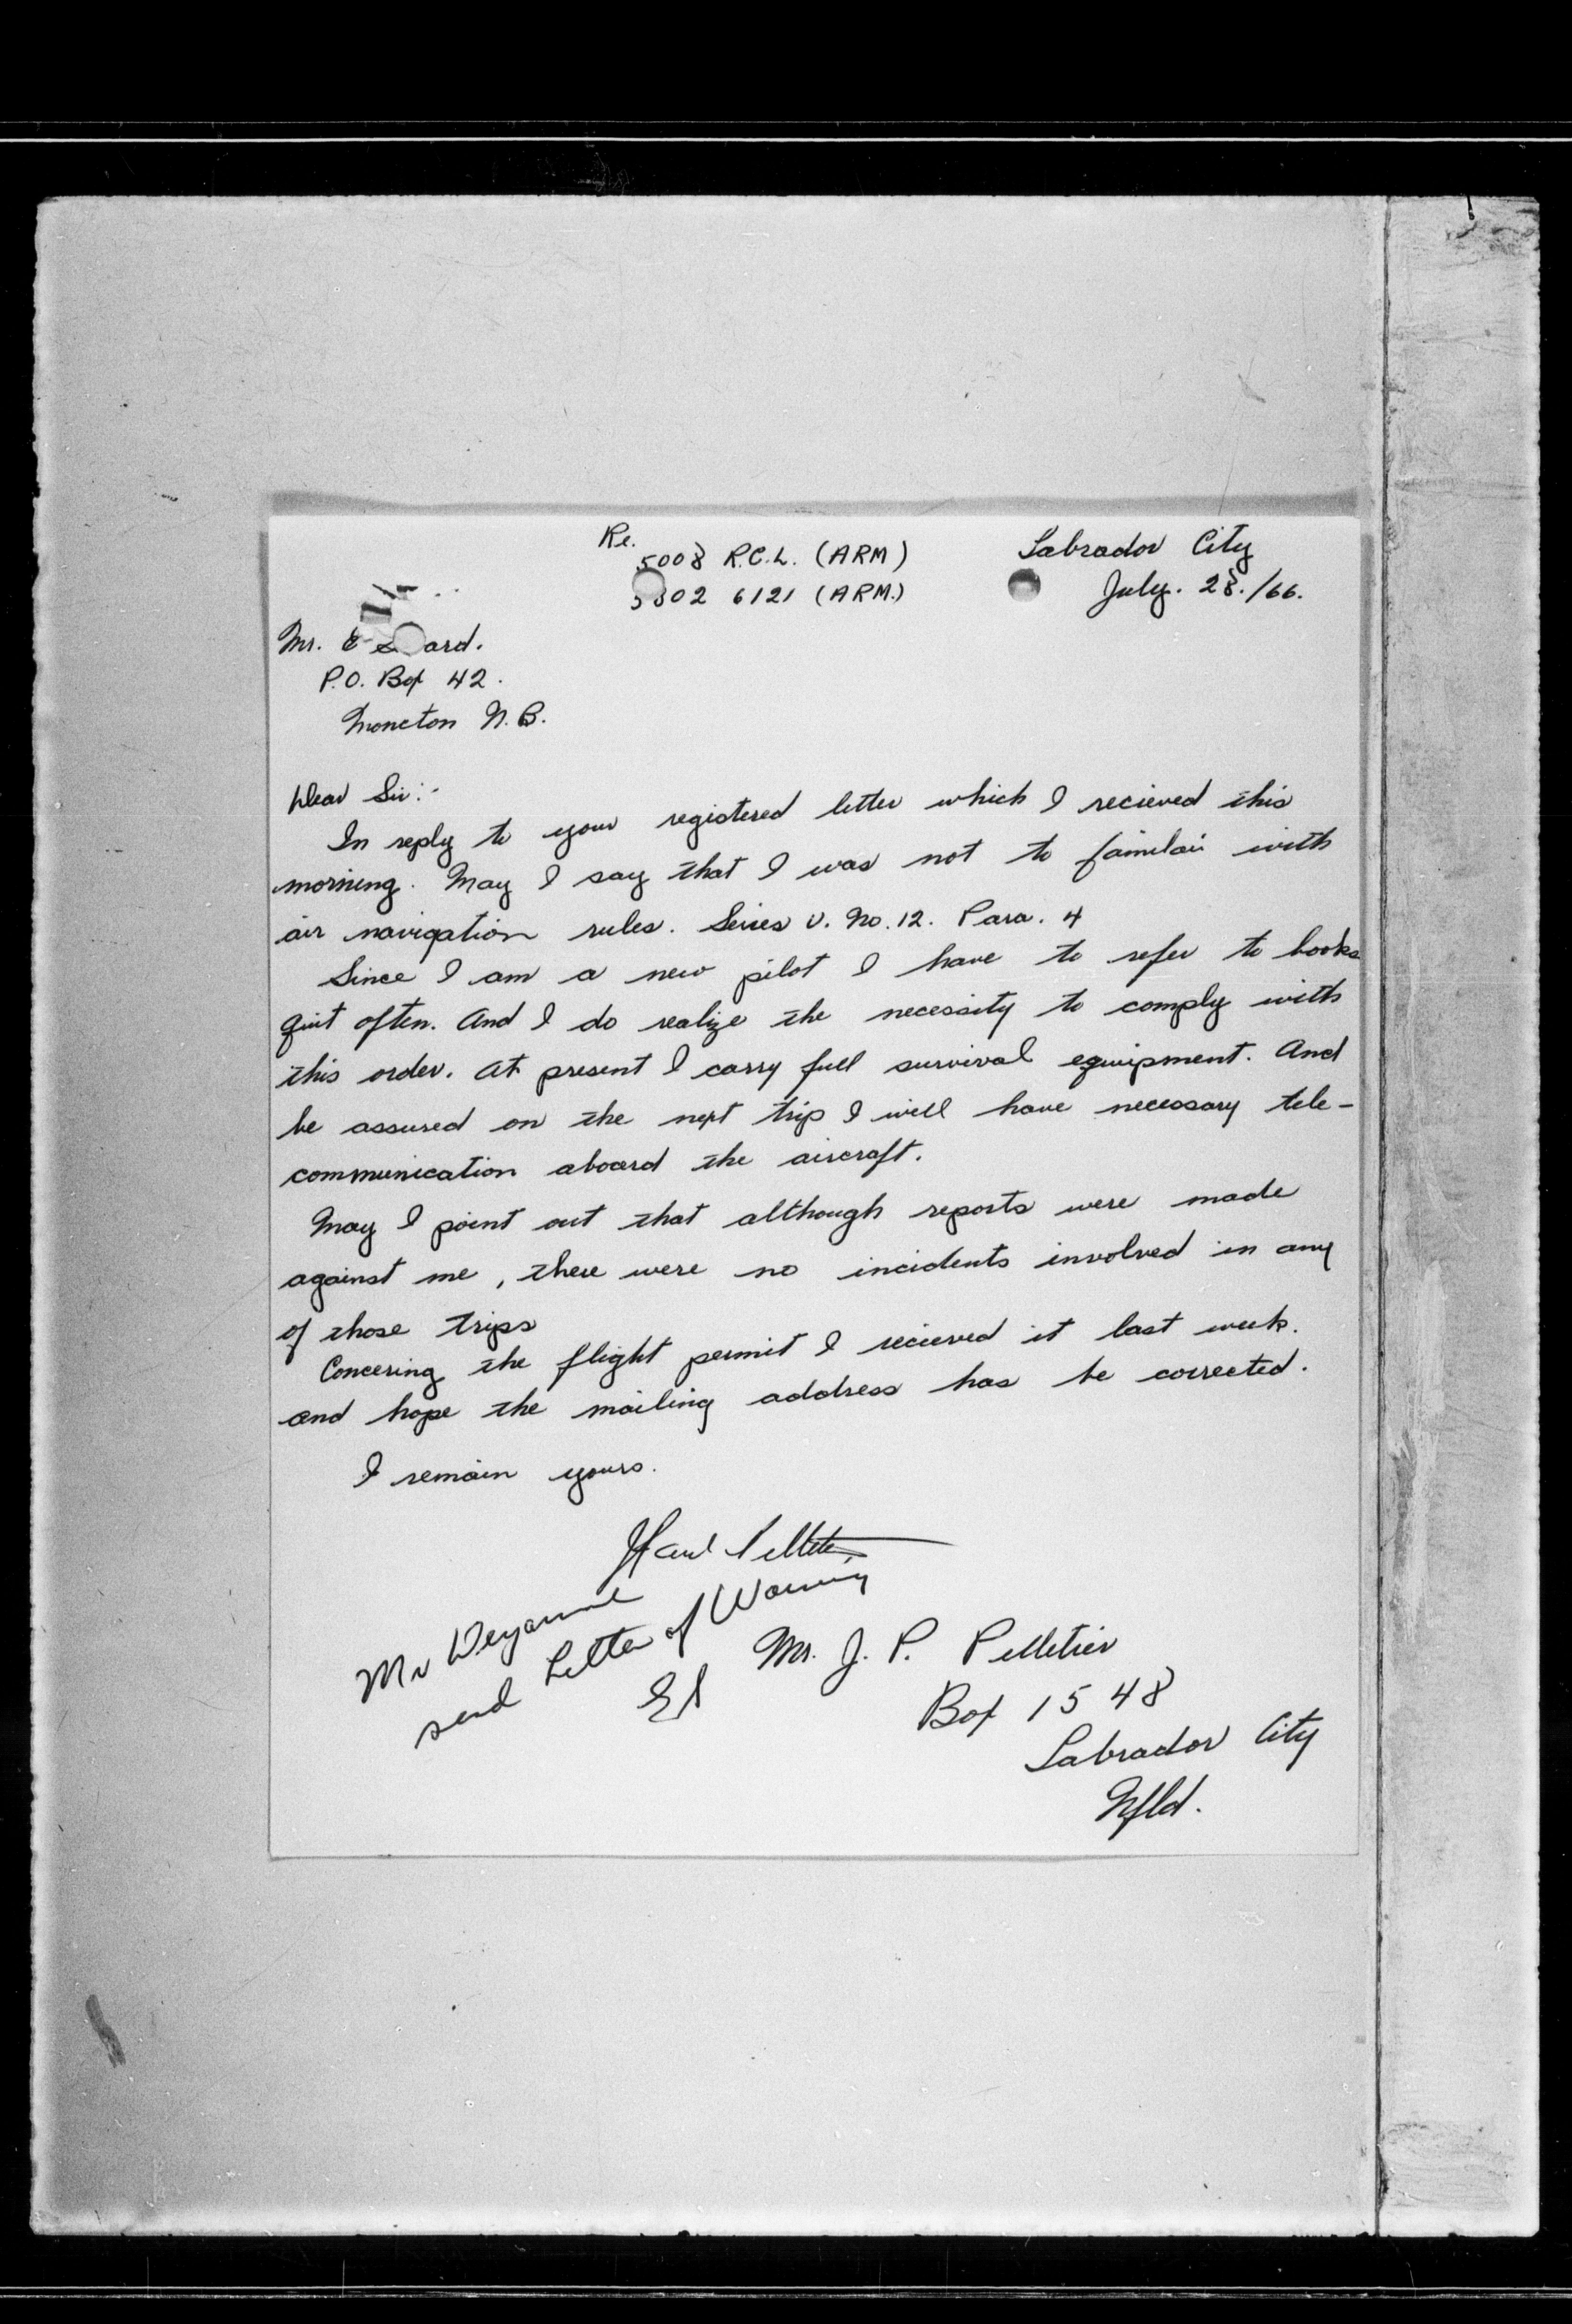 Re.
5008 R.C.L. (ARM)
Labrador City
5802 6121 (ARM.)
July. 28./66.
Mr. E
P.O. Box 42.
Moncton N.B.
Dear Sir:-
In reply to your registered letter which I recieved this
morning. May I say that I was not to familair with
air navigation rules. Series V. No. 12. Para. 4
Since I am a new pilot I have to refer to books
quit often. And I do realize the necessity to comply with
this order. At present I carry full survival equipment. And
be assured on the next trip I will have necessary tele-
communication aboard the aircraft.
May I point out that although reports were made
against me, there were no incidents involved in any
of those trips
Concering the flight permit I recieved it last week.
and hope the mailing address has be corrected.
I remain yours.
J Paul Pelletier
Mr
send Letter of Warning
Mr. J. P. Pelletier
Box 1548
Labrador City
Nfld.